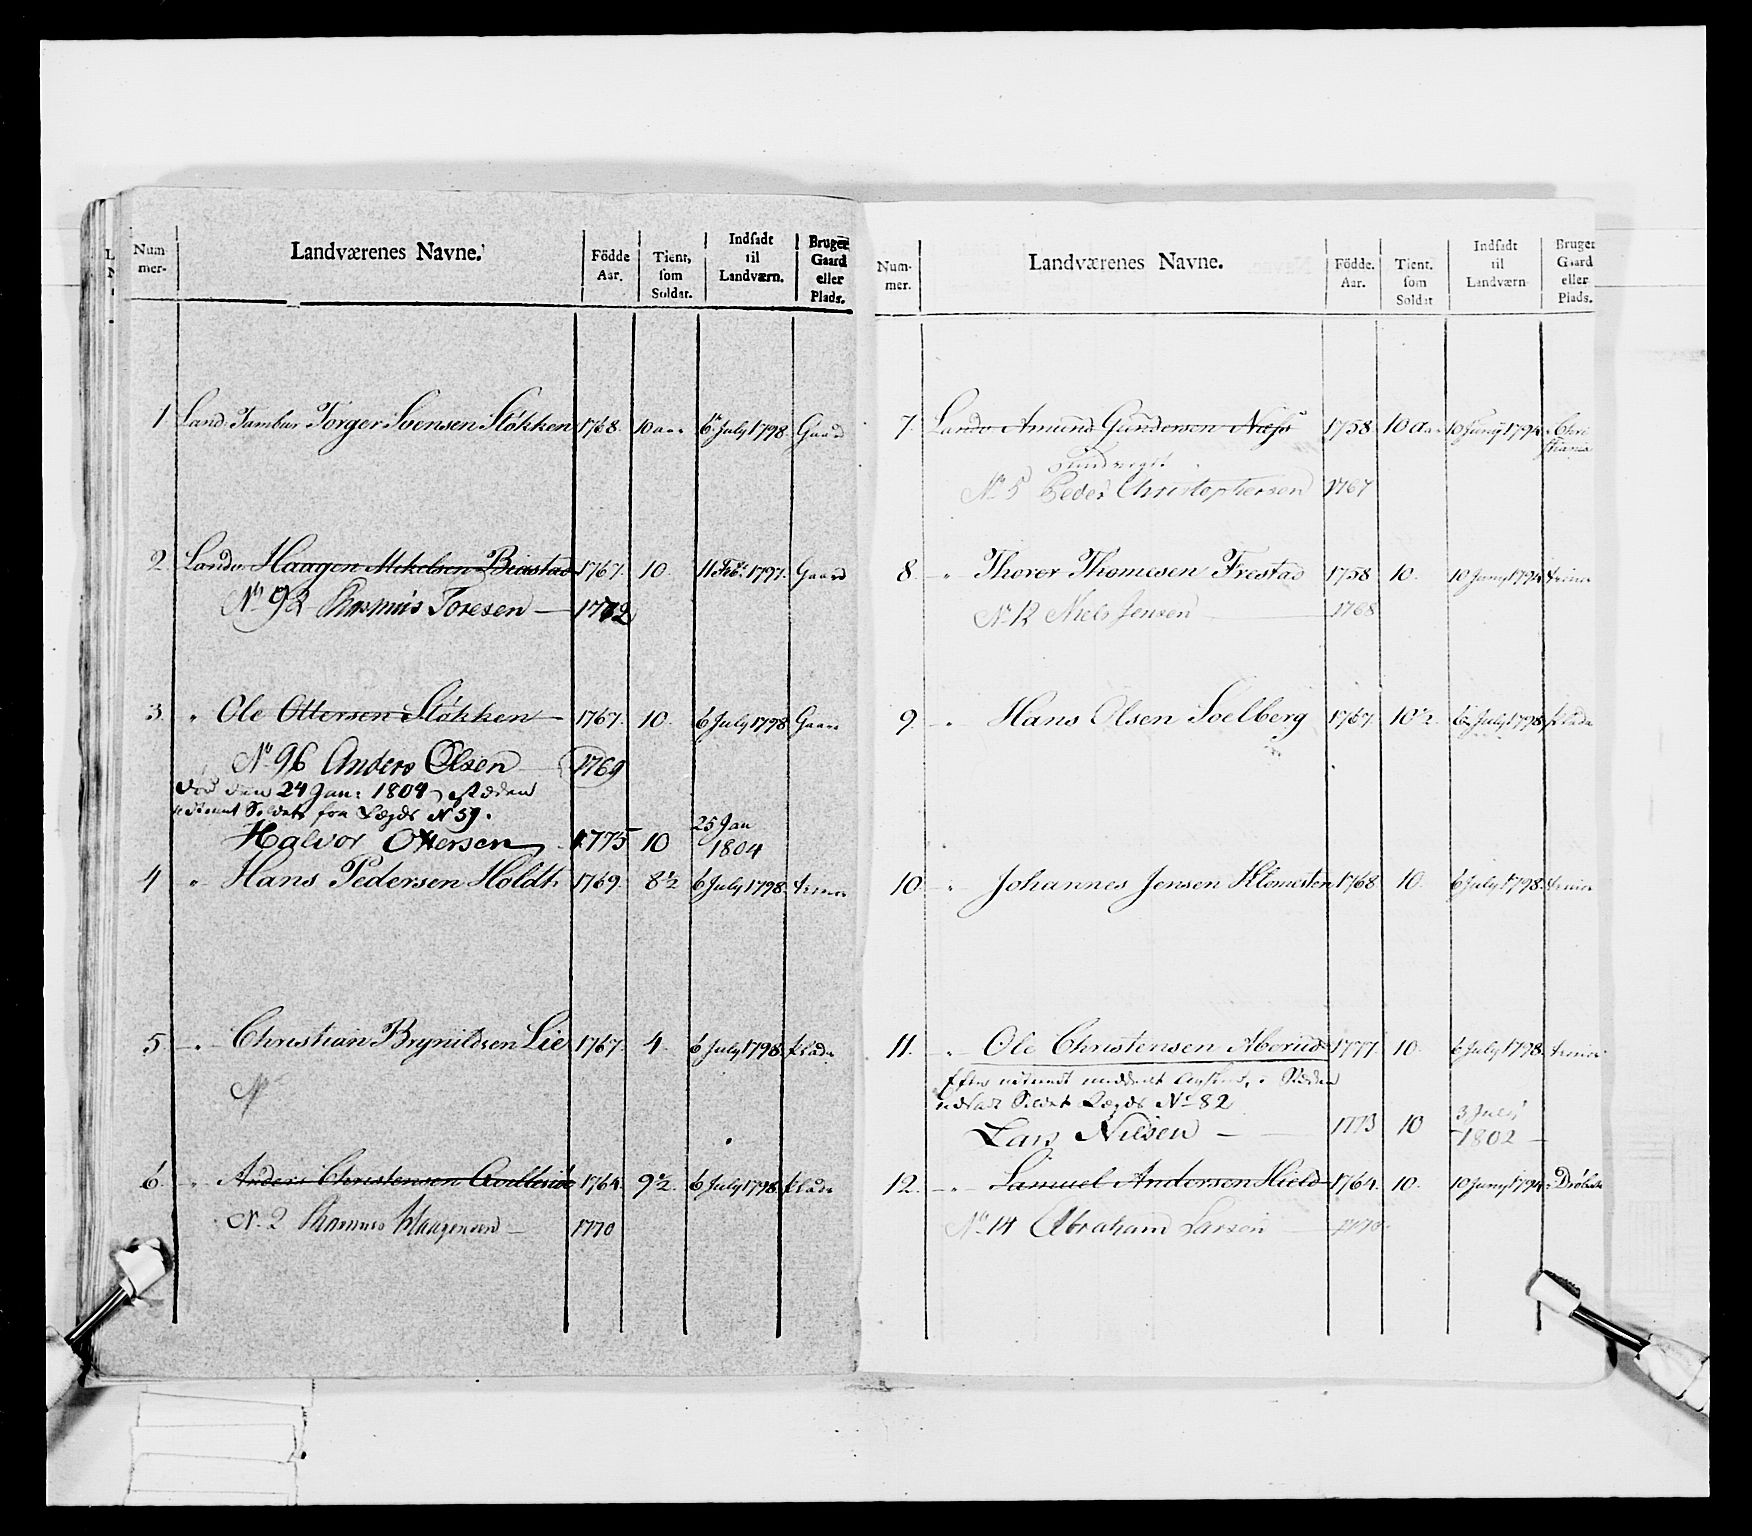 Num-
mer-
Landværenes Navne.
Födde
Aar.
Tient,
som
Soldat.
Indsadt
til
Landværn.
Bruger
Gaard
eller
Plads.
1 Land: Tambur Torger Svensen Støkken 1768. 10 6 July 1798. Gaard
2 Landv: Haagen Mikelsen 1767. 10. 11 Febr: 1797. Gaard
No 92 Rasmus Toresen — 1772
3. " Ole Ottersen Støkken — 1767. 10. 6 July 1798 Gaard
No 96 Anders Olsen — 1769
død den 24 Jan: 1804, i Stæden
Soldat fra Lægds No 59.
Halvor Ottersen 1775 10 25 Jan
1804
4 " Hans Pedersen Holdt 1769. 8½ 6 July 1798.
5. " Christian Brynildsen Lie 1767. 4. 6 July 1798.
No
6. " Anders Christensen 1764. 9½. 6 July 1798.
No 2 Rasmus Haagensen — 1770
Num-
mer.
Landværenes Navne.
Födde.
Aar.
Tient.
som
Soldat
Indsadt
til
Landværn
Bruger
Gaard
eller
Plads.
7. Landv Amund Gundersen Næss 1758 10 10 Juny 1794 Chri
stiania
No 5 Peder Christophersen 1767
8 " Thorer Thomesen Frestad 1758 10. 10 Juny 1794
No 12 Niels Jensen 1768
9. " Hans Olsen Soelberg 1767. 10½. 6 July 1798
10 " Johannes Jensen 1768 10. 6 July 1798.
11. " Ole Christensen Aberud 1777. 10. 6 July 1798.
Efter i Stæden
indsadt Soldat Lægds No 82
Lars Nilsen — 1773 10 3 July
1802 —
12. " Samuel Andersen Hield 1764. 10. 10 Juny 1794. Drøbak
No 14 Abraham Larsen 1770